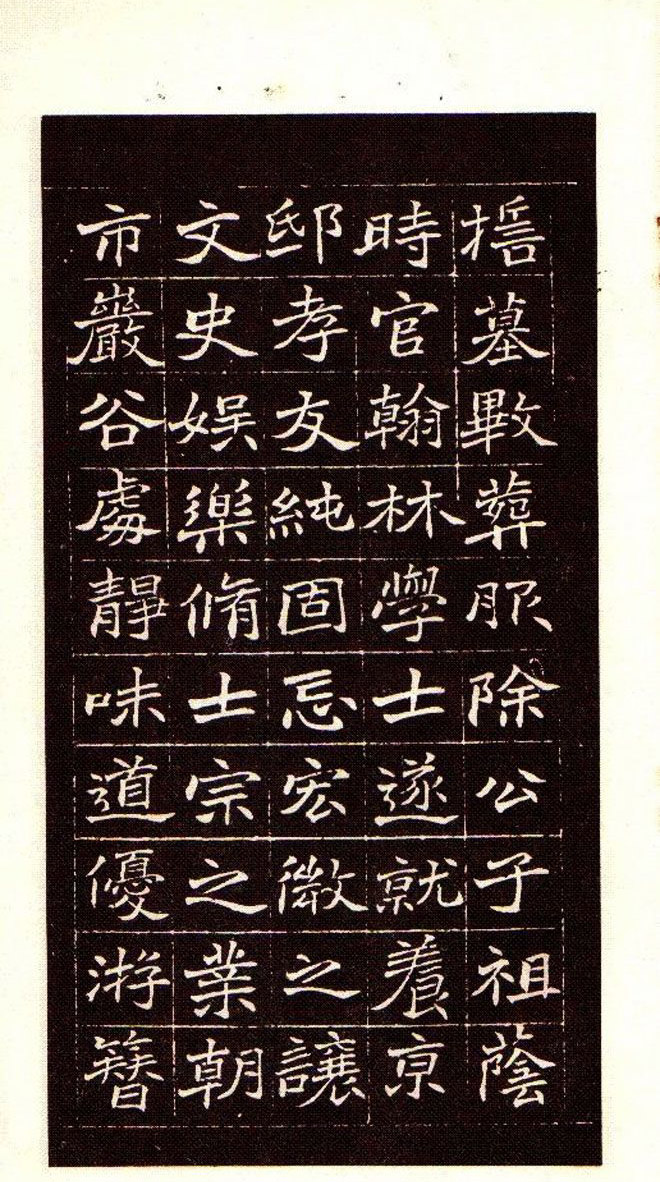 揺墓畢葬服除公子祖蔭
時官翰林學士遂就養京
邸孝友純固忘宏微之讓
文史娛樂脩士宗之業朝
市巖谷處靜味道優游簪